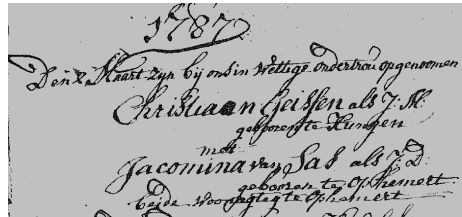 1787
Den 2 Maart zyn bij ons in Wettige ondertrou opgenoomen
Christiaan Geissen als J: M:
geboren te Hungen
met
Jacomina van Sas als J: D:
gebooren te Ophemert
beide te Ophemert